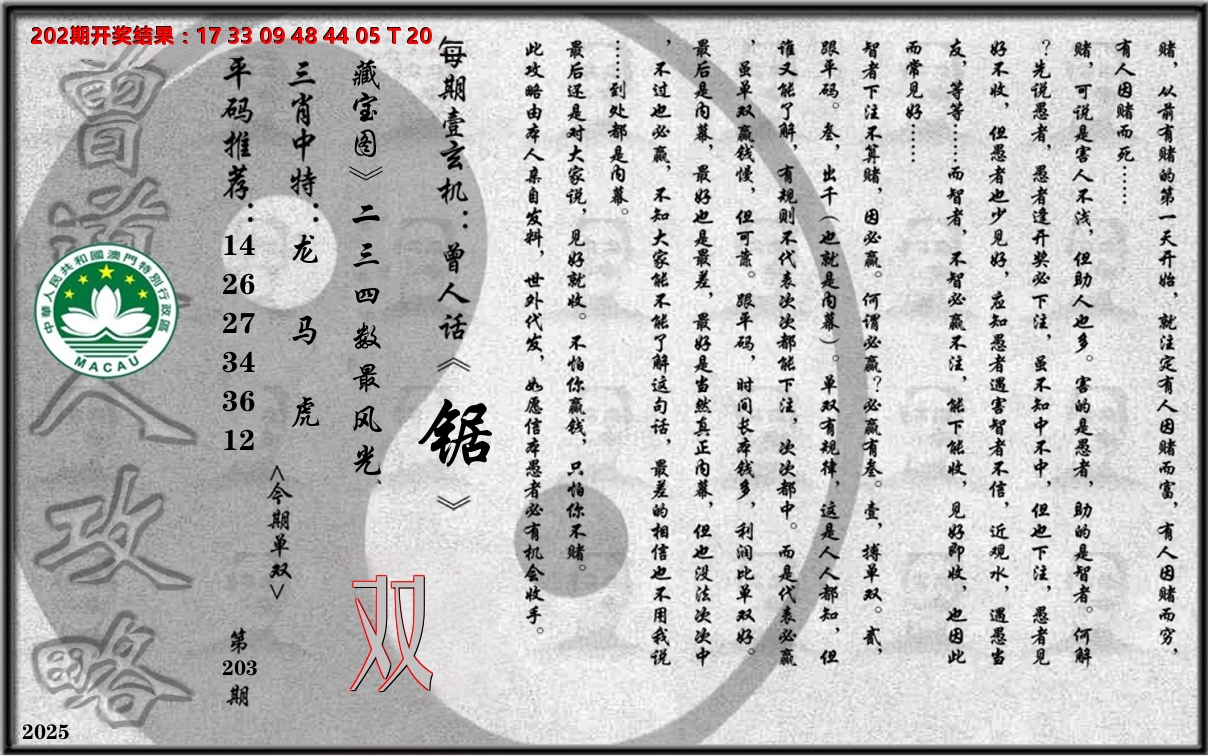 202期开奖结果：17 33 09 48 44 05 T 20
赌，从前有赌的第一天开始，就注定有人因赌而富，有人因赌而穷，
有人因赌而死……
赌，可说是害人不浅，但助人也多。害的是愚者，助的是智者。何解
？先说愚者，愚者逢开奖必下注，虽不知中不中，但也下注，愚者见
好不收，但愚者也少见好，应知愚者遇害智者不信，近观水，遇愚当
友，等等……而智者，不智必赢不注，能下能收，见好即收，也因此
而常见好……
智者下注不算赌，因必赢。何谓必赢？必赢有叁。壹，搏单双。贰，
跟平码。叁，出千（也就是内幕）。单双有规律，这是人人都知，但
谁又能了解，有规则不代表次次都能下注，次次都中。而是代表必赢
，虽单双赢钱慢，但可靠。跟平码，时间长本钱多，利润比单双好。
最后是内幕，最好也是最差，最好是当然真正内幕，但也没法次次中
，不过也必赢，不知大家能不能了解这句话，最差的相信也不用我说
……到处都是内幕。
最后还是对大家说，见好就收。不怕你赢钱，只怕你不赌。
此攻略由本人亲自发料，世外代发，如愿信本愚者必有机会收手。
每期壹玄机：曾人话《锯》
藏宝图》二三四数最风光、
双
三肖中特：龙 马 虎
<今期单双>
平码推荐：14 26 27 34 36 12
第203期
曾道人攻略
中華人民共和國澳門特別行政區
MACAU
2025